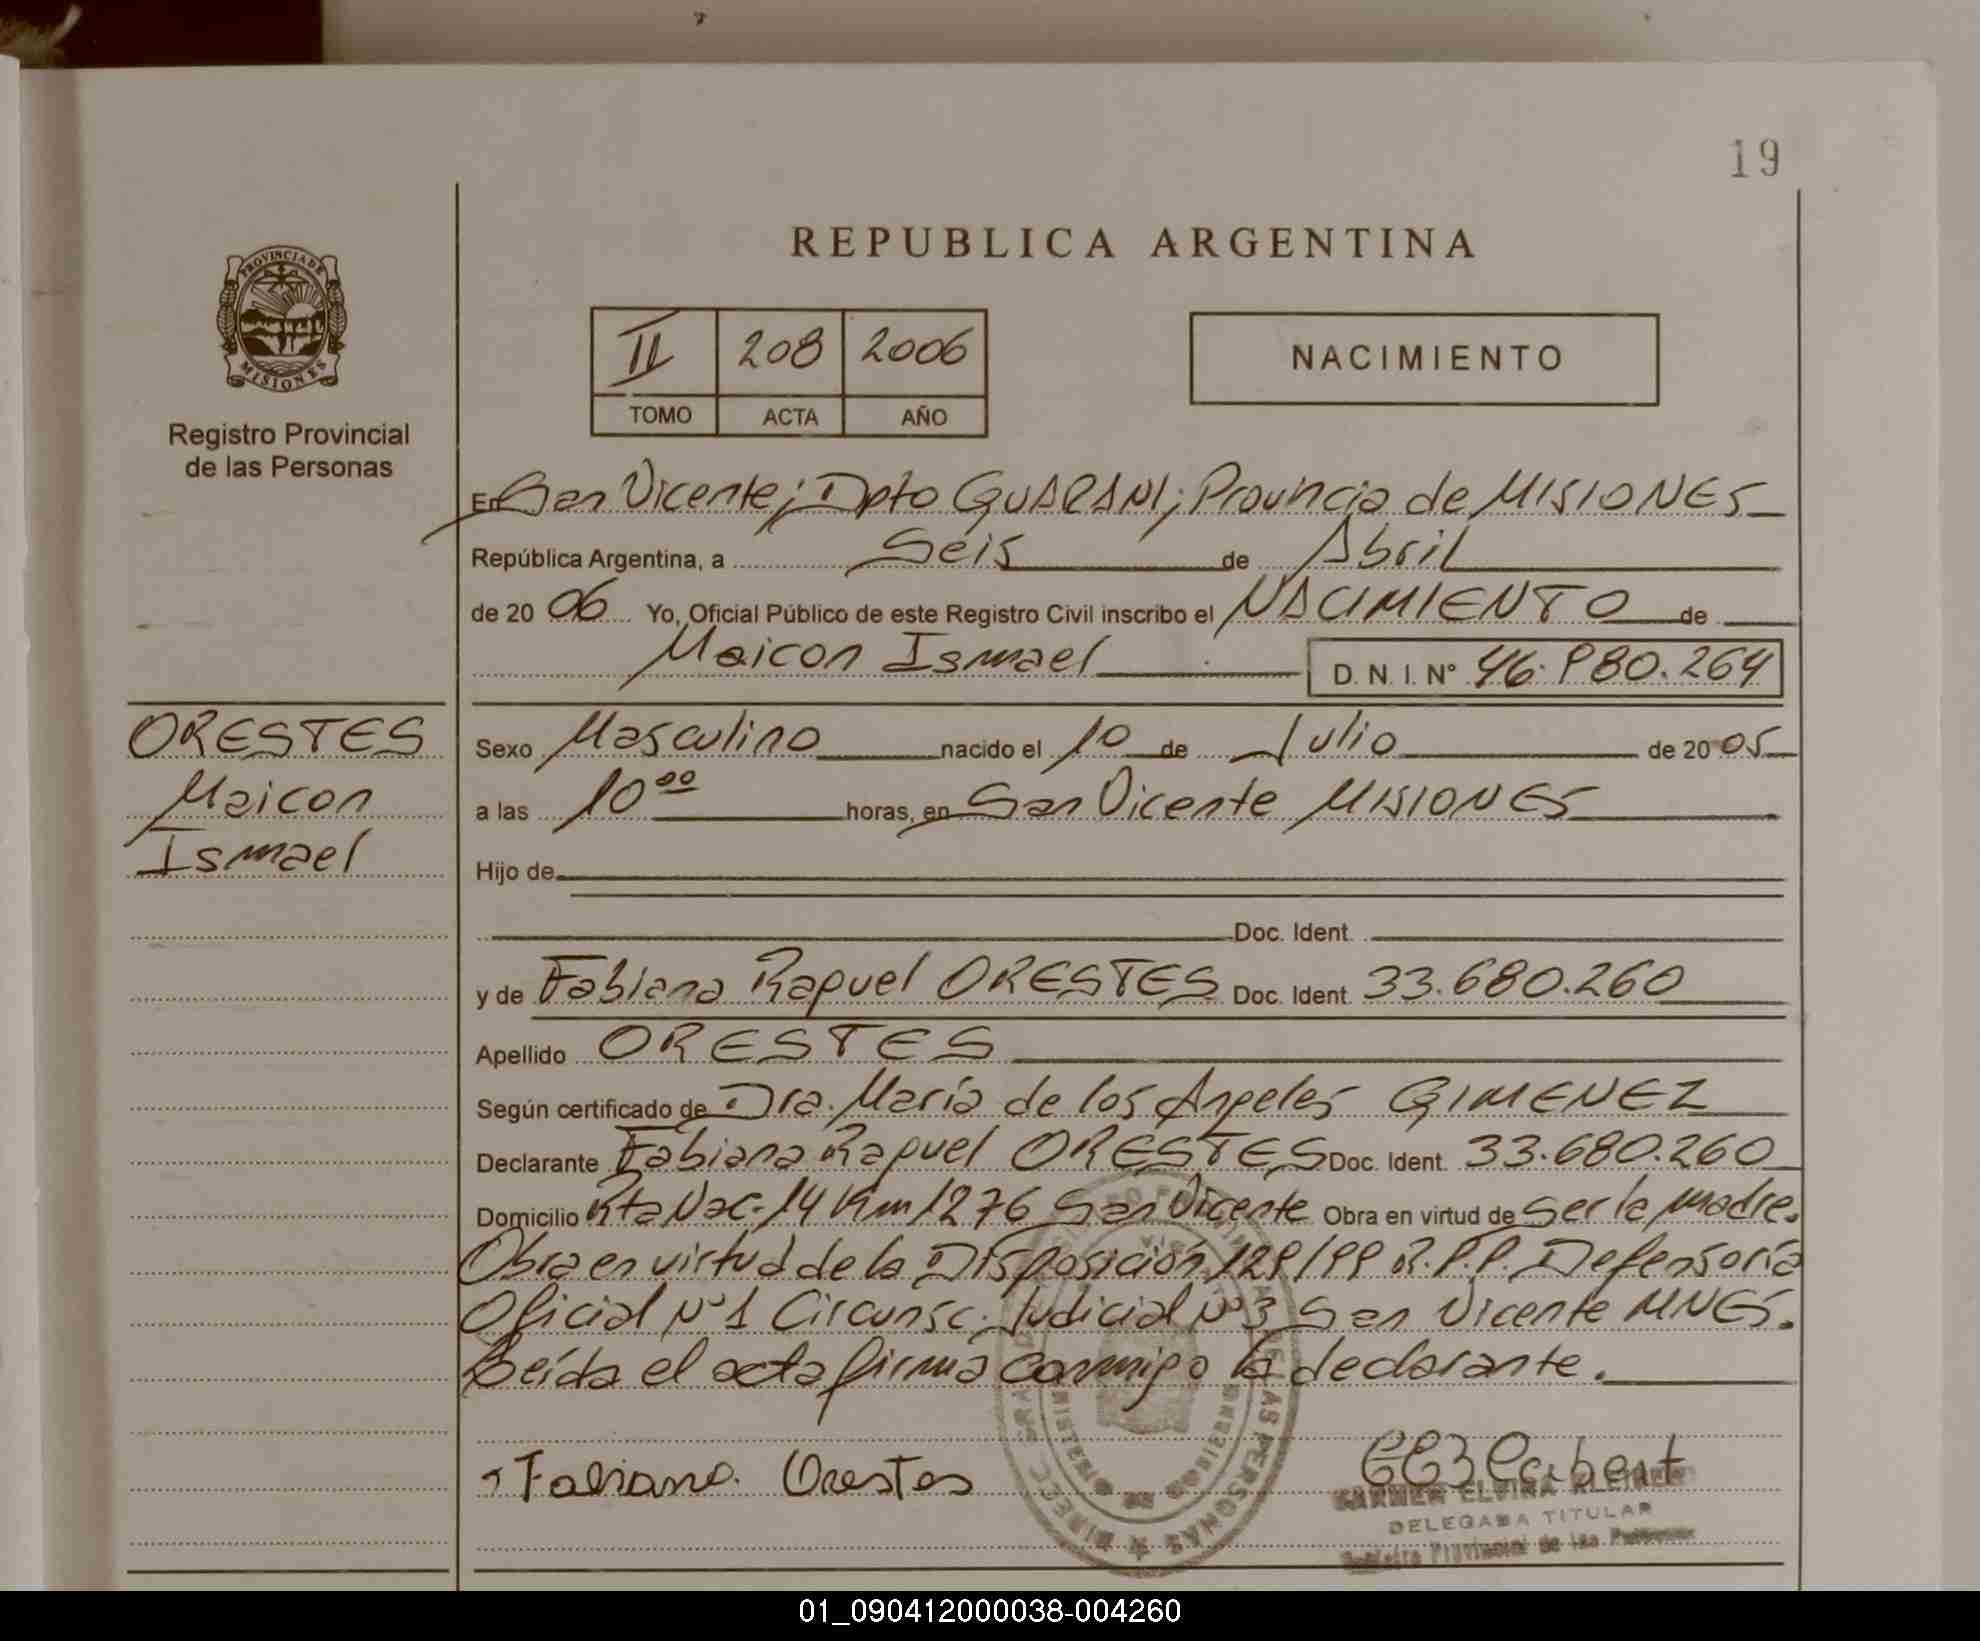 19
REPUBLICA ARGENTINA
PROVINCIA DE
MISIONES
Registro Provincial
de las Personas
II 208 2006
TOMO ACTA AÑO
NACIMIENTO
En San Vicente; Dpto GUARANI; Provincia de MISIONES
República Argentina, a Seis de Abril
de 20 06 Yo, Oficial Público de este Registro Civil inscribo el NACIMIENTO de
Maicon Ismael D. N. I. N° 46.980.264
ORESTES
Maicon
Ismael
Sexo Masculino nacido el 10 de Julio de 20 05
a las 10 00 horas, en San Vicente MISIONES
Hijo de
Doc. Ident.
y de Fabiana Raquel ORESTES Doc. Ident. 33.680.260
Apellido ORESTES
Según certificado de Dra. María de los Angeles GIMENEZ
Declarante Fabiana Raquel ORESTES Doc. Ident. 33.680.260
Domicilio Rta Nac. 14 Km 1276 San Vicente Obra en virtud de ser la madre.
Obra en virtud de la Disposición 129/99 R.P.P. Defensoría
Oficial N°1 Circunsc. Judicial N°3 San Vicente MNES.
Leída el acta firma conmigo la declarante.
Fabiana Orestes
CARMEN ELVIRA
DELEGADA TITULAR
Registro Provincial de las Personas
01_090412000038-004260